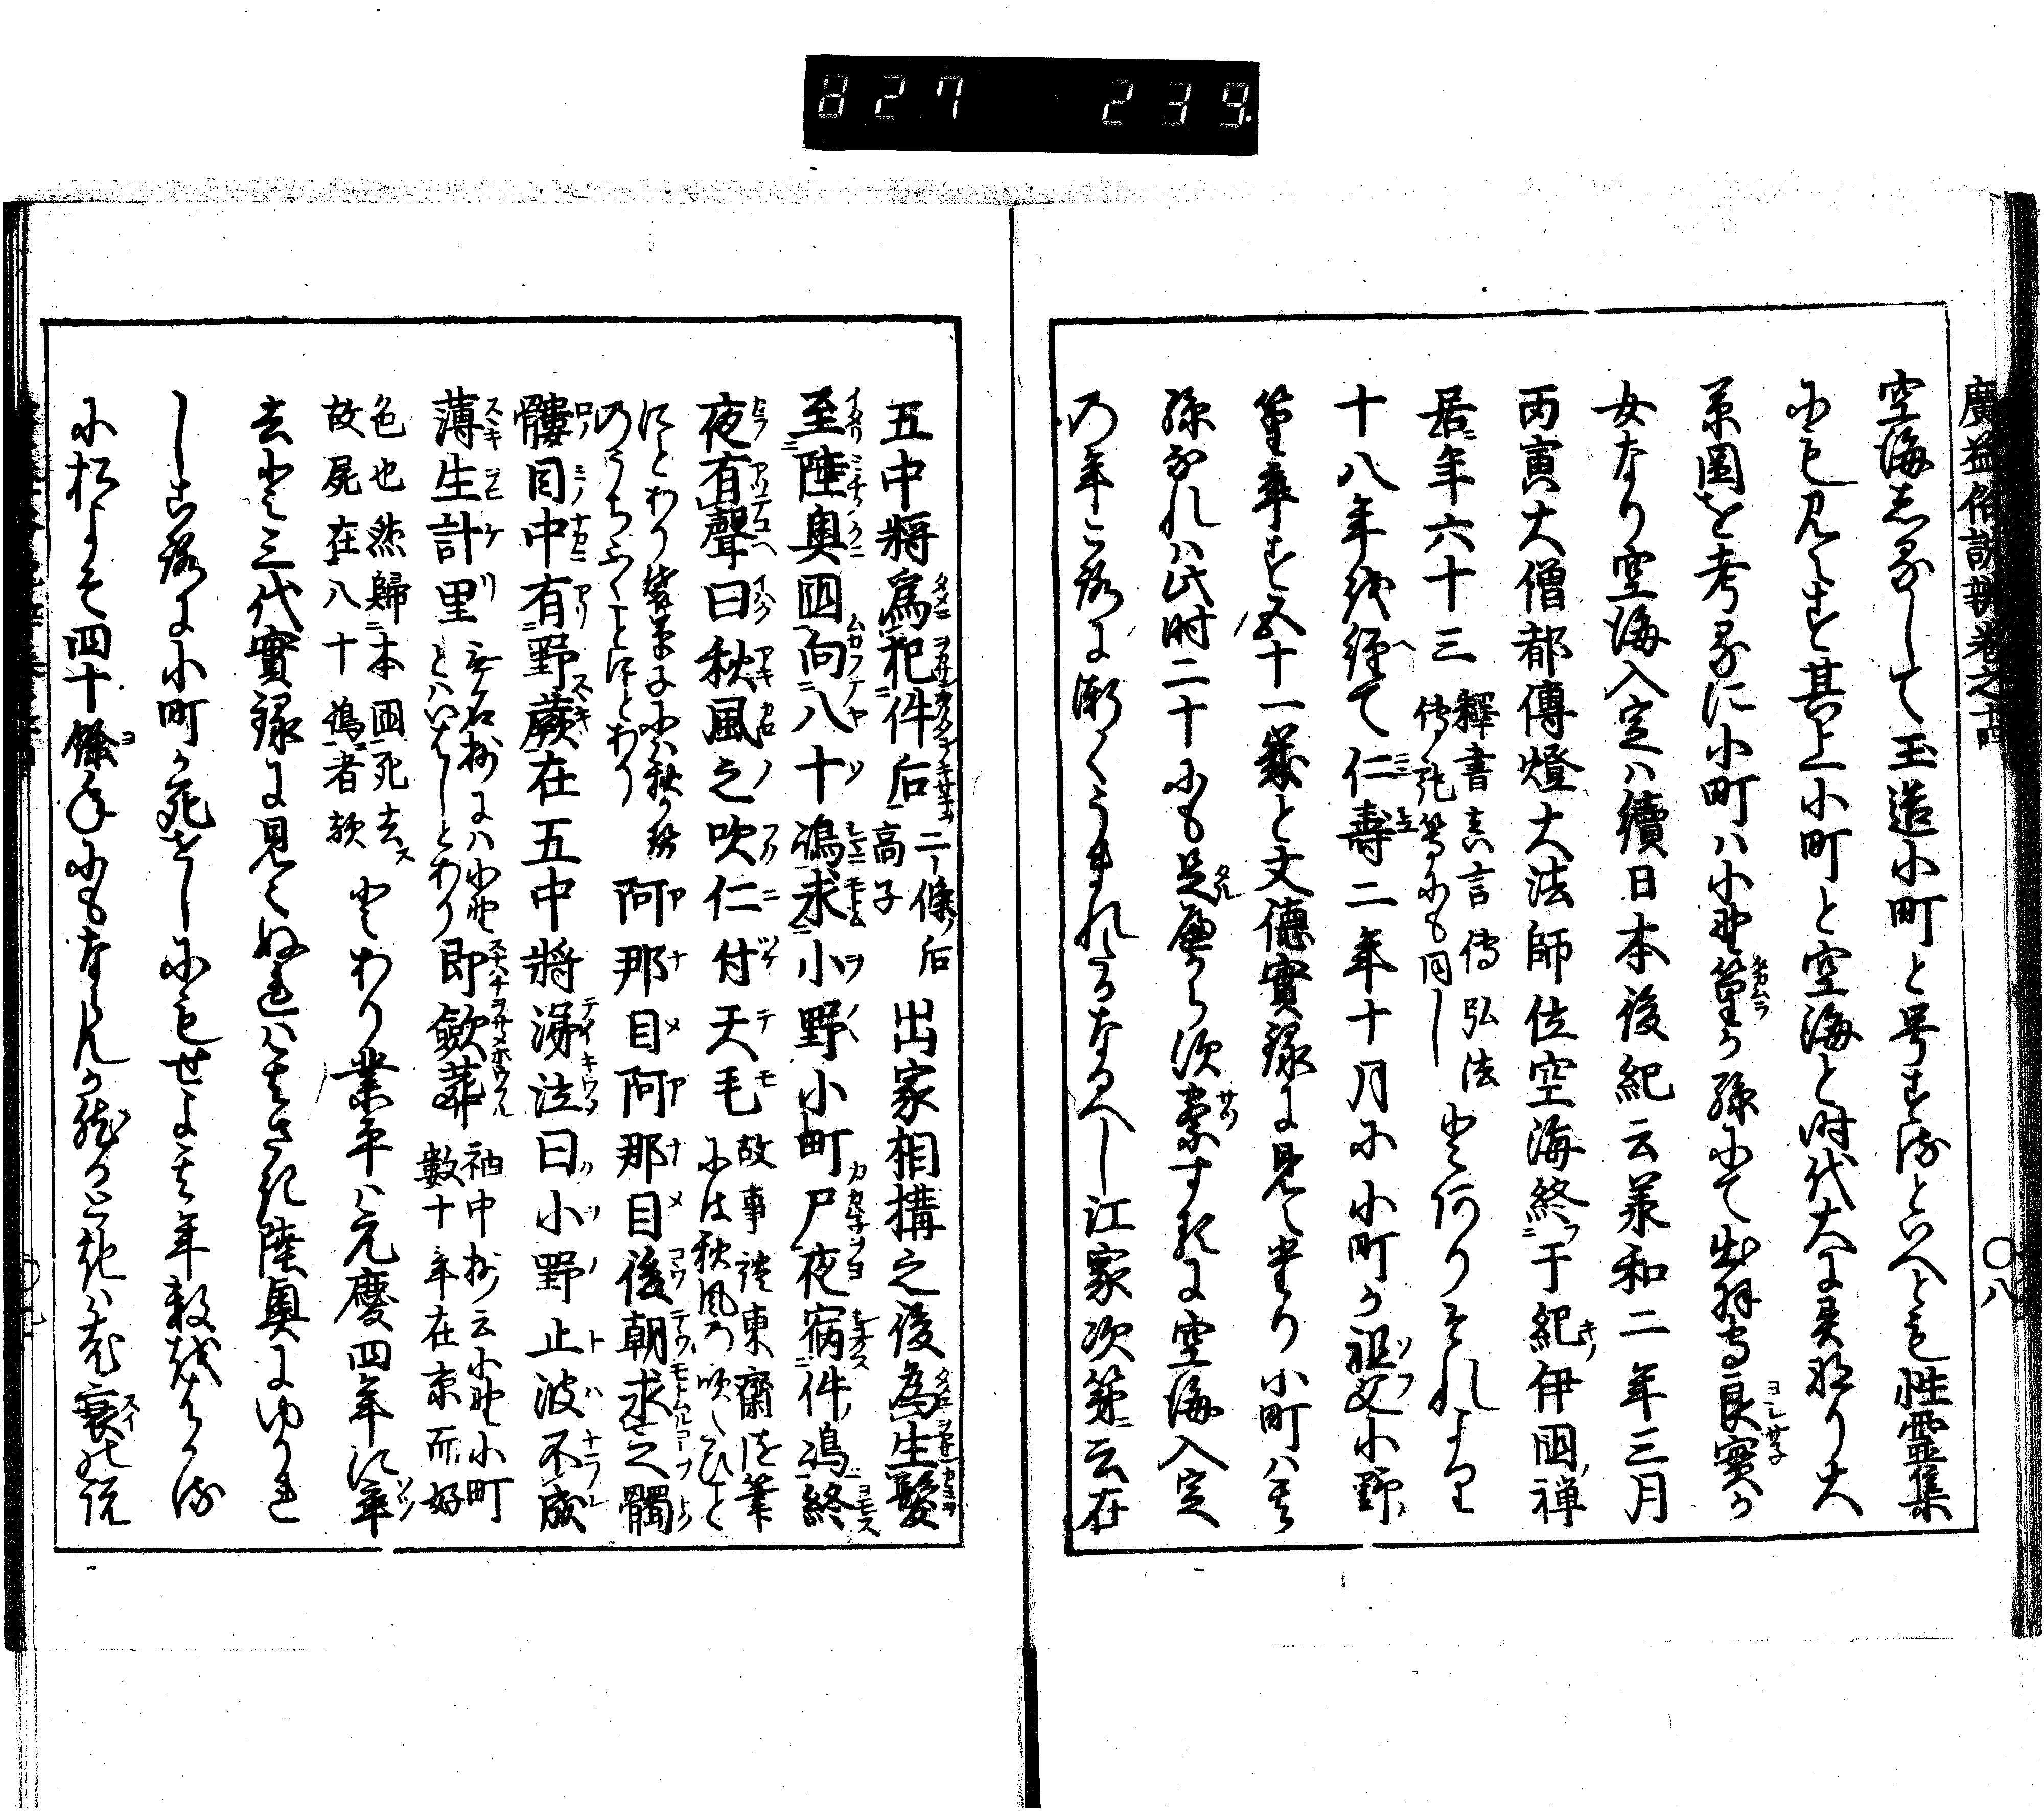 827 239
廣益俗説辨巻之十四 ○八
空海しるして玉造小町と号すといへとも性靈集
にも見えす其上小町と空海と时代大に異なり大
系圖を考るに小町ハ小野篁か孫にて出羽守良實か
女なり空海入定ハ續日本後紀云羕和二年三月
丙寅大僧都傳燈大法師位空海終于紀伊囯禅
居年六十三
釋書真言傳弘法
傳
等にも同し
とありそれより
十八年を経て仁壽二年十月に小町か祖父小野
篁卒す五十一歳と文徳實録に見えたり小町ハ其
孫なれハ此时二十にも足へからす案するに空海入定
の年ころに漸くうまれたるなるへし江家次第云在
五中將爲犯件后
二條后
高子
出家相構之後為生髮
至陸奥囯向八十嶋求小野小町尸夜宿件嶋終
夜有聲曰秋風之吹仁付天毛
故事談東齋随筆
には秋風の吹くひと
にとあり袋草子にハ秋
のうちふくことにとあり
阿那目阿那目後朝求之髑
髏目中有野蕨在五中將涕泣曰小野止波不成
薄生計里
無名抄にハ小野
とハいはしとあり
即歛葬
袖中抄云小野小町
數十年在京而好
色也然歸本囯死去
故屍在八十嶋者歟
とあり業平ハ元慶四年に卒
去と三代實録に見えぬれハ其さき陸奥にゆかれ
しころに小町か死せしにもせよ其年数
四十餘年にもなんか然るときハ衰の説